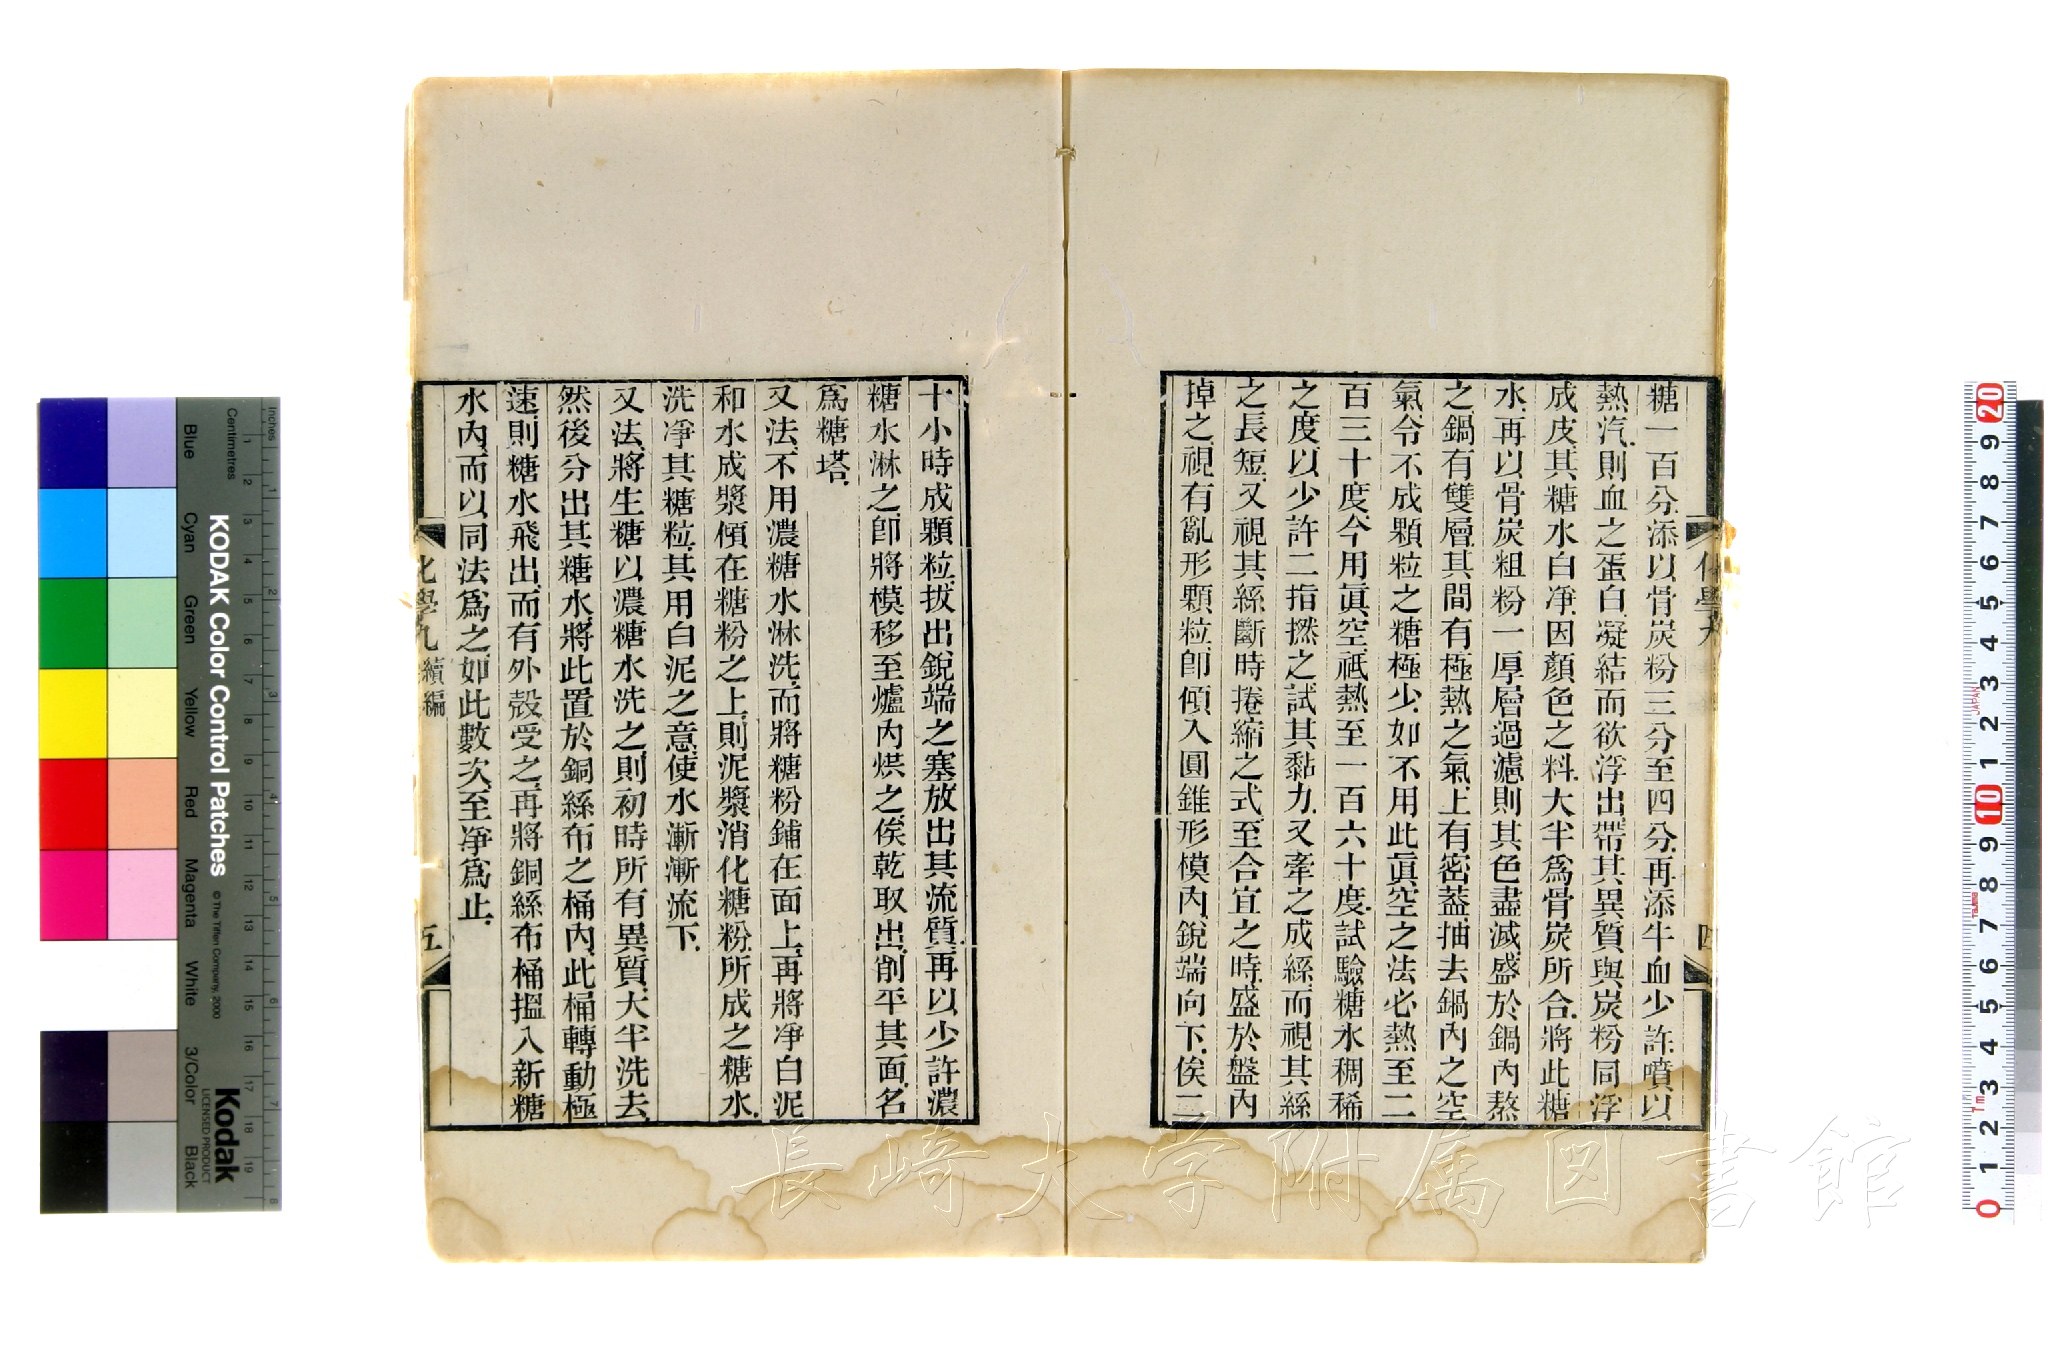 糖一百分添以骨炭粉三分至四分再添牛血少許噴以
熱汽則血之蛋白凝結而欲浮出帶其異質與炭粉同浮
成皮其糖水白淨因顏色之料大半爲骨炭所合將此糖
水再以骨炭粗粉一厚層過濾則其色盡滅盛於鍋內熬
之鍋有雙層其間有極熱之氣上有密蓋抽去鍋內之空
氣令不成顆粒之糖極少如不用此眞空之法必熱至二
百三十度今用眞空祗熱至一百六十度試驗糖水稠稀
之度以少許二指撚之試其黏力又牽之成絲而視其絲
之長短又視其絲斷時捲縮之式至合宜之時盛於盤內
掉之視有亂形顆粒卽傾入圓錐形模內銳端向下俟二
十小時成顆粒拔出銳端之塞放出其流質再以少許濃
糖水淋之卽將模移至爐內烘之俟乾取出削平其面名
爲糖塔
又法不用濃糖水淋洗而將糖粉鋪在面上再將淨白泥
和水成漿傾在糖粉之上則泥漿消化糖粉所成之糖水
洗淨其糖粒其用白泥之意使水漸漸流下
又法將生糖以濃糖水洗之則初時所有異質大半洗去
然後分出其糖水將此置於銅絲布之桶內此桶轉動極
速則糖水飛出而有外殼受之再將銅絲布桶搵入新糖
水內而以同法爲之如此數次至淨爲止
化學九 續編
五
長崎大学附属図書館
KODAK Color Control Patches
© The Tiffen Company, 2000
Kodak
LICENSED PRODUCT
Inches
Centimetres
Blue
Cyan
Green
Yellow
Red
Magenta
White
3/Color
Black
20
9
8
7
6
5
4
3
2
1
10
9
8
7
6
5
4
3
2
1
0
JAPAN